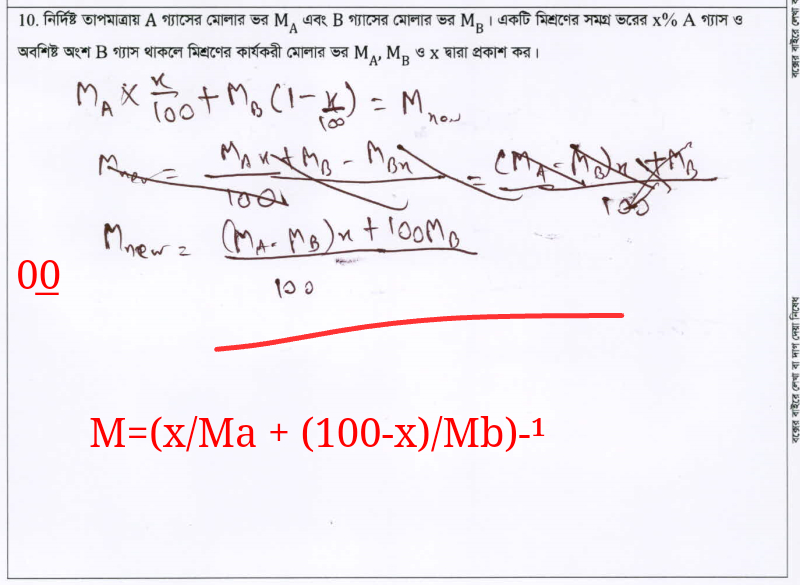 10. নির্দিষ্ট তাপমাত্রায় A গ্যাসের মোলার ভর M_A এবং B গ্যাসের মোলার ভর M_B। একটি মিশ্রণের সমগ্র ভরের x% A গ্যাস ও
অবশিষ্ট অংশ B গ্যাস থাকলে মিশ্রণের কার্যকরী মোলার ভর M_A, M_B ও x দ্বারা প্রকাশ কর।
M_A × x/100 + M_B (1 - x/100) = M_new
M_new = (M_A x + M_B - M_B x)/100 = ((M_A - M_B)x + M_B)/100
M_new = ((M_A - M_B)x + 100M_B)/100
00
M=(x/Ma + (100-x)/Mb)-¹
বক্সের বাইরে লেখা বা দাগ দেয়া নিষেধ